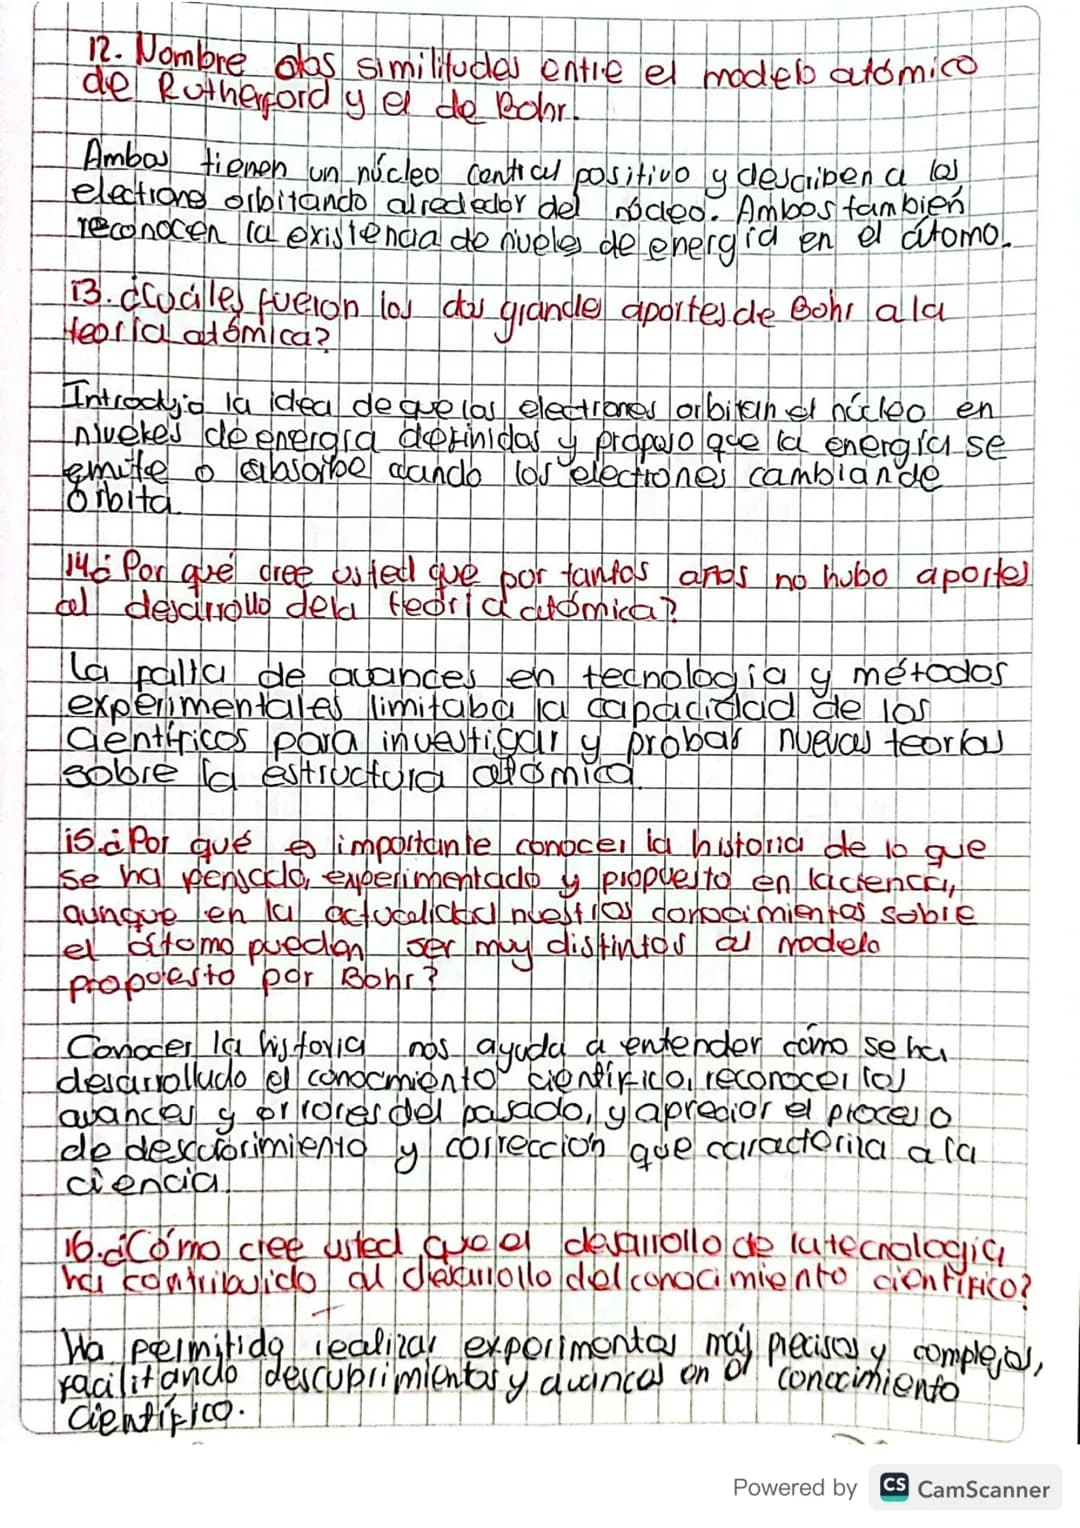 12. Nombre dos similitudes entre el modelo atómico
de Rutherford y el de Bohr.
Ambos tienen un núcleo central positivo y describen a los
electrones orbitando alrededor del núcleo. Ambos también
reconocen la existencia de niveles de energía en el átomo.
13. ¿Cuáles fueron los dos grandes aportes de Bohr a la
teoría atómica?
Introdujo la idea de que los electrones orbitan el núcleo en
niveles de energía definidas y propuso que la energía se
emite o absorbe cuando los electrones cambian de
órbita.
14 ¿Por qué cree usted que por tantos años no hubo aportes
al desarrollo de la teoría atómica?
La falta de avances en tecnología y métodos
experimentales limitaba la capacidad de los
científicos para investigar y probar nuevas teorías
sobre la estructura atómica.
15. ¿Por qué es importante conocer la historia de lo que
se ha pensado, experimentado y propuesto en la ciencia,
aunque en la actualidad nuestros conocimientos sobre
el átomo puedan ser muy distintos al modelo
propuesto por Bohr?
Conocer la historia nos ayuda a entender cómo se ha
desarrollado el conocimiento científico, reconocer los
avances y errores del pasado, y apreciar el proceso
de descubrimiento y corrección que caracteriza a la
ciencia.
16. ¿Cómo cree usted que el desarrollo de la tecnología
ha contribuido al desarrollo del conocimiento científico?
Ha permitido realizar experimentos más precisos y complejos,
facilitando descubrimientos y avances en el conocimiento
científico.
Powered by CS CamScanner